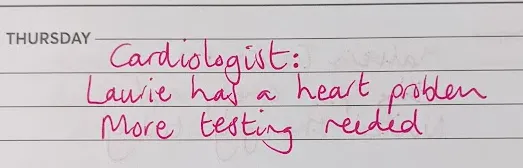 THURSDAY
Cardiologist:
Laurie has a heart problem
More testing needed